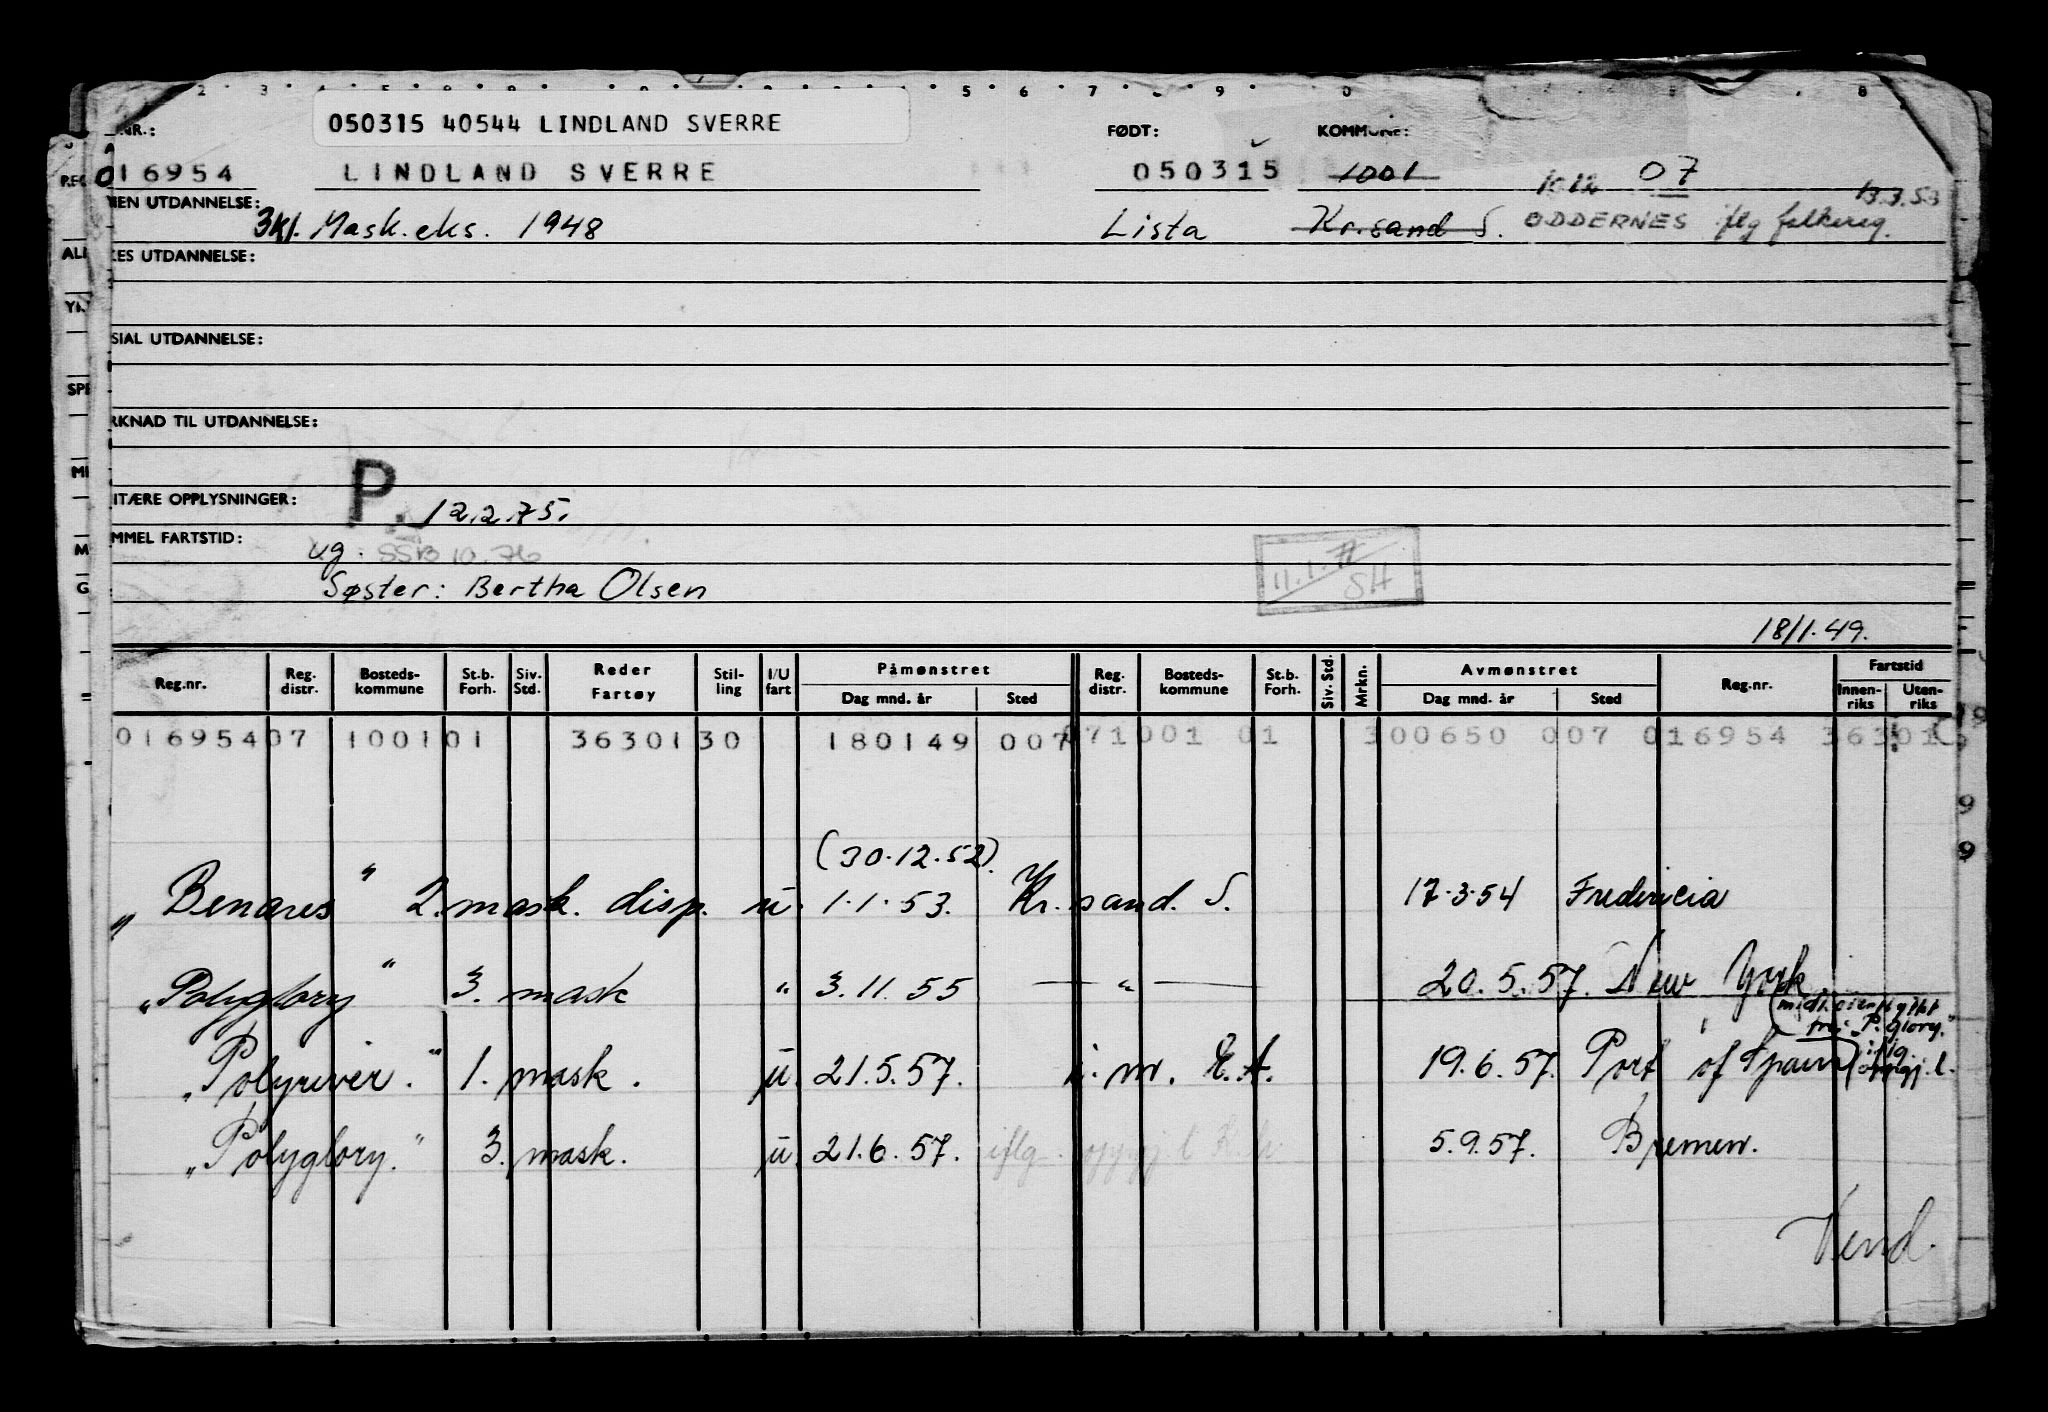 050315 40544 LINDLAND SVERRE
.NR.: FØDT: KOMMUNE:
016954 LINDLAND SVERRE 050315 1001 1012 07
MEN UTDANNELSE: 3kl. Mask.eks. 1948 Lista Kr.sand S. ODDERNES iflg folkereg. 13.3.53
KES UTDANNELSE:
SIAL UTDANNELSE:
RKNAD TIL UTDANNELSE:
ITÆRE OPPLYSNINGER: P. 12.2.75.
MMEL FARTSTID: ug. SSB 10.76
11.1.72 SH
Søster: Bertha Olsen
18/1.49.
Reg.nr. Reg. distr. Bosteds- kommune St.b. Forh. Siv. Std. Reder Fartøy Stil- ling I/U fart Påmønstret Dag mnd. år Sted Reg. distr. Bosteds- kommune St.b. Forh. Siv. Std. Mrkn. Avmønstret Dag mnd. år Sted Reg.nr. Fartstid Innen- riks Uten- riks
016954 07 1001 01 36301 30 180149 007 071001 01 300650 007 016954 36301
(30.12.52)
"Benares" 2. mask. disp. u. 1.1.53. Kr.sand. S. 17.3.54 Fredericia
"Polyglory" 3. mask " 3.11.55 — " — 20.5.57. New York
(midl. overflyttet
fra "P. glory."
"Polyriver." 1. mask. u. 21.5.57. i. nr. E.A. 19.6.57. Port of Spain iflg. oppgj. l.
"Polyglory." 3. mask. u. 21.6.57. iflg. oppgj. l 5.9.57. Bremen.
Vend.